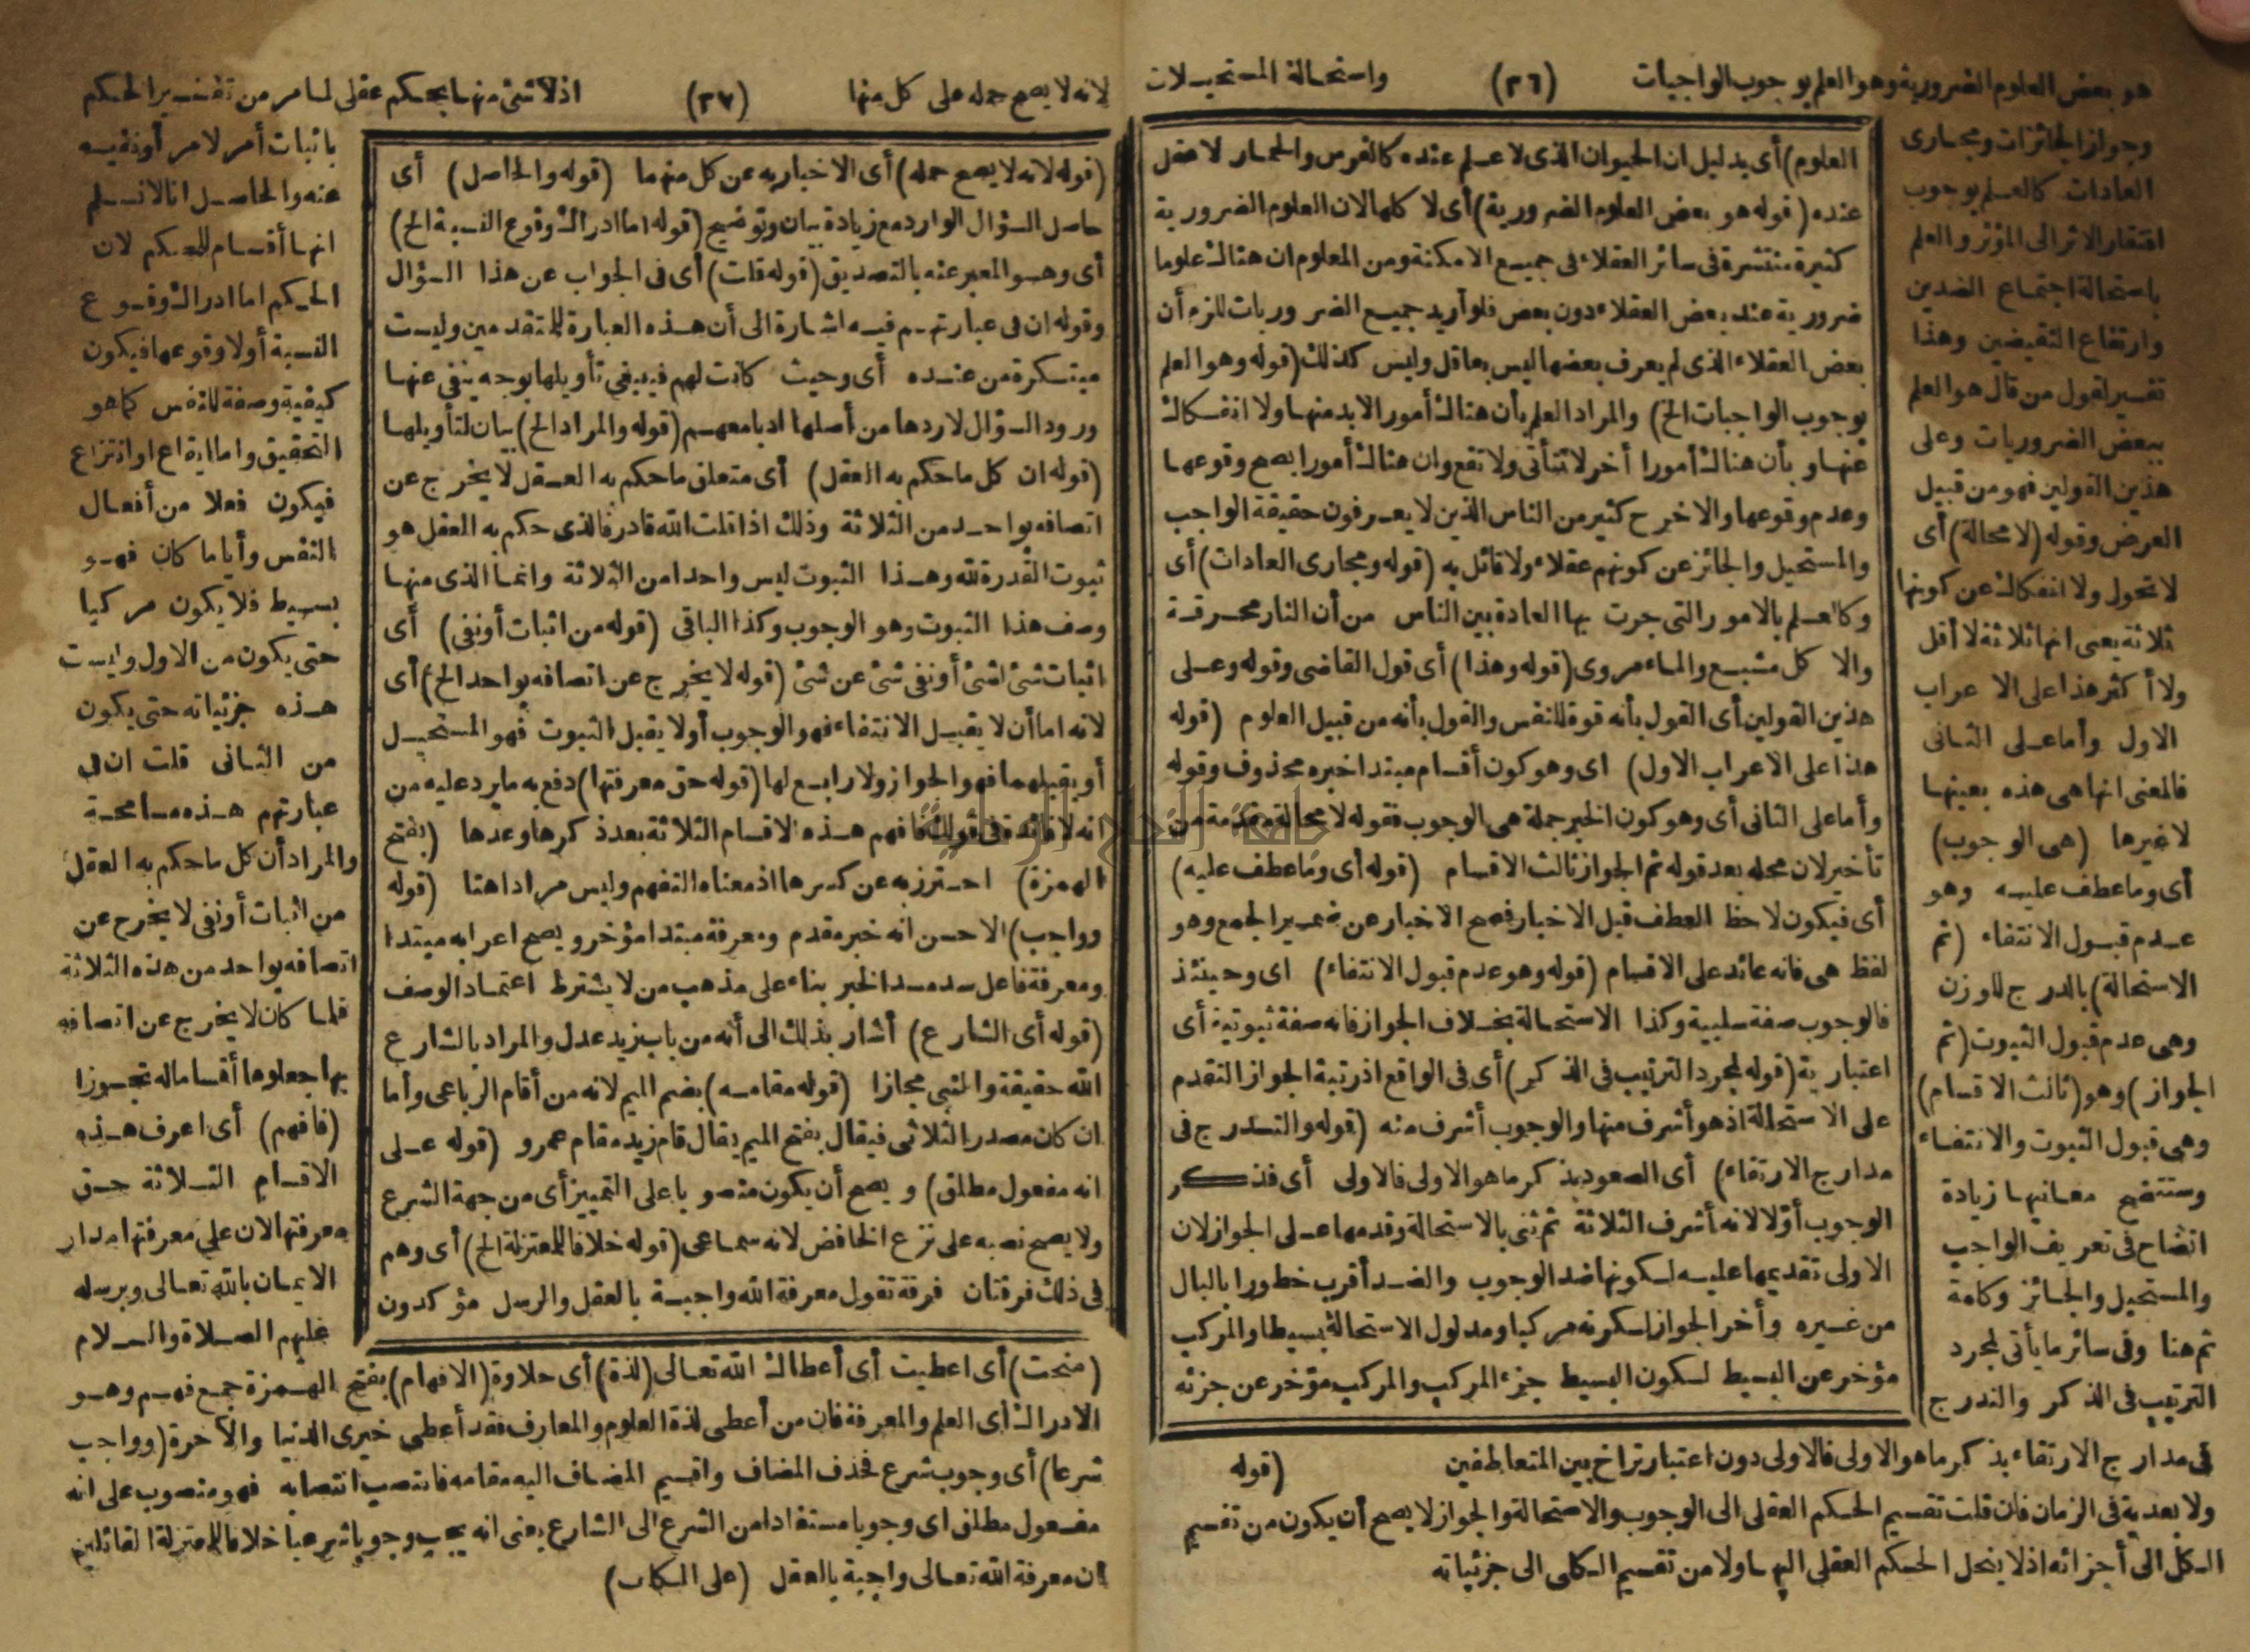 هو بعض العلوم الضرورية وهو العلم بوجوب الواجبات (٣٦) واستحالة المستحيلات
وجواز الجائزات ومجارى
العادات كالعلم بوجوب
افتقار الاثر الى المؤثر والعلم
باستحالة اجتماع الضدين
وارتفاع النقيضين وهذا
تفسير لقول من قال هو العلم
ببعض الضروريات وعلى
هذين القولين فهو من قبيل
العرض وقوله (لا محالة) أى
لا تحول ولا انفكاك عن كونها
ثلاثة يعنى انها ثلاثة لا أقل
ولا أكثر هذا على الاعراب
الاول وأما على الثانى
فالمعنى انها هى هذه بعينها
لا غيرها (هى الوجوب)
أى وما عطف عليه وهو
عدم قبول الانتفاء (ثم
الاستحالة) بالدرج للوزن
وهى عدم قبول الثبوت (ثم
الجواز) وهو (ثالث الاقسام)
وهى قبول الثبوت والانتفاء
وستتضح معانيها زيادة
اتضاح فى تعريف الواجب
والمستحيل والجائز وكلمة
ثم هنا وفى سائر ما يأتى لمجرد
الترتيب فى الذكر والتدرج
فى مدارج الارتقاء بذكر ما هو الاولى فالاولى دون اعتبار تراخ بين المتعاطفين (قوله
ولا بعدية فى الزمان فان قلت تقسيم الحكم العقلى الى الوجوب والاستحالة والجواز لا يصح أن يكون من تقسيم
الكل الى أجزائه اذ لا ينحل الحكم العقلى اليها ولا من تقسيم الكلى الى جزئياته
العلوم) أى بدليل ان الحيوان الذى لا علم عنده كالفرس والحمار لا عقل
عنده (قوله هو بعض العلوم الضرورية) أى لا كلها لان العلوم الضرورية
كثيرة منتشرة فى سائر العقلاء فى جميع الامكنة ومن المعلوم ان هناك علوما
ضرورية عند بعض العقلاء دون بعض فلو أريد جميع الضروريات للزم أن
بعض العقلاء الذى لم يعرف بعضها ليس بعاقل وليس كذلك (قوله وهو العلم
بوجوب الواجبات الخ) والمراد العلم بأن هناك أمورا لا بد منها ولا انفكاك
عنها وبأن هناك أمورا أخر لا تتأتى ولا تقع وان هناك أمورا يصح وقوعها
وعدم وقوعها والا خرج كثير من الناس الذين لا يعرفون حقيقة الواجب
والمستحيل والجائز عن كونهم عقلاء ولا قائل به (قوله ومجارى العادات) أى
وكالعلم بالامور التى جرت بها العادة بين الناس من أن النار محرقة
والاكل مشبع والماء مروى (قوله وهذا) أى قول القاضى وقوله وعلى
هذين القولين أى القول بأنه قوة للنفس والقول بأنه من قبيل العلوم (قوله
هذا على الاعراب الاول) اى وهو كون أقسام مبتدا خبره محذوف وقوله
وأما على الثانى أى وهو كون الخبر جملة هى الوجوب فقوله لا محالة مقدمة من
تأخير لان محله بعد قوله ثم الجواز ثالث الاقسام (قوله أى وما عطف عليه)
أى فيكون لاحظ العطف قبل الاخبار فصح الاخبار عن ضمير الجمع وهو
لفظ هى فانه عائد على الاقسام (قوله وهو عدم قبول الانتفاء) اى وحينئذ
فالوجوب صفة سلبية وكذا الاستحالة بخلاف الجواز فانه صفة ثبوتية أى
اعتبارية (قوله لمجرد الترتيب فى الذكر) أى فى الواقع اذ رتبة الجواز التقدم
على الاستحالة اذ هو أشرف منها والوجوب أشرف منه (قوله والتدرج فى
مدارج الارتقاء) أى الصعود بذكر ما هو الاولى فالاولى أى فذكر
الوجوب أولا لانه أشرف الثلاثة ثم ثنى بالاستحالة وقدمها على الجواز لان
الاولى تقديمها عليه لكونها ضد الوجوب والضد أقرب خطورا بالبال
من غيره وأخر الجواز لكونه مركبا ومدلول الاستحالة بسيطا والمركب
مؤخر عن البسيط لكون البسيط جزء المركب والمركب مؤخر عن جزئه
لانه لا يصح حمله على كل منها (٣٧) اذ لا شئ منها بحكم عقلى لما مر من تفسير الحكم
(قوله لانه لا يصح حمله) أى الاخبار به عن كل منهما (قوله والحاصل) أى
حاصل السؤال الوارد مع زيادة بيان وتوضيح (قوله اما ادراك وقوع النسبة الخ)
أى وهو المعبر عنه بالتصديق (قوله قلت) أى فى الجواب عن هذا السؤال
وقوله ان فى عبارتهم فيه اشارة الى أن هذه العبارة للمتقدمين وليست
مبتكرة من عنده أى وحيث كانت لهم فينبغي تأويلها بوجه ينفى عنها
ورود السؤال لا ردها من أصلها ادبا معهم (قوله والمراد الخ) بيان لتأويلها
(قوله ان كل ما حكم به العقل) أى متعلق ما حكم به العقل لا يخرج عن
اتصافه بواحد من الثلاثة وذلك اذا قلت الله قادر فالذى حكم به العقل هو
ثبوت القدرة لله وهذا الثبوت ليس واحدا من الثلاثة وانما الذى منها
وصف هذا الثبوت وهو الوجوب وكذا الباقى (قوله من اثبات أو نفى) أى
اثبات شئ لشئ أو نفى شئ عن شئ (قوله لا يخرج عن اتصافه بواحد الخ) أى
لانه اما أن لا يقبل الانتفاء فهو الوجوب أو لا يقبل الثبوت فهو المستحيل
أو يقبلهما فهو الجواز ولا رابع لها (قوله حق معرفتها) دفع به ما يرد عليه من
انه لا فائدة فى قولك فافهم هذه الاقسام الثلاثة بعد ذكرها وعدها (بفتح
الهمزة) احترز به عن كسرها اذ معناه التفهم وليس مرادا هنا (قوله
وواجب) الاحسن انه خبر مقدم ومعرفة مبتدا مؤخر ويصح اعرابه مبتدا
ومعرفة فاعل سد مسد الخبر بناء على مذهب من لا يشترط اعتماد الوصف
(قوله أى الشارع) أشار بذلك الى أنه من باب زيد عدل والمراد بالشارع
الله حقيقة والنبى مجازا (قوله مقامه) بضم الميم لانه من أقام الرباعى وأما
ان كان مصدر الثلاثى فيقال بفتح الميم يقال قام زيد مقام عمرو (قوله على
انه مفعول مطلق) ويصح أن يكون منصوبا على التمييز أى من جهة الشرع
ولا يصح نصبه على نزع الخافض لانه سماعى (قوله خلافا للمعتزلة الخ) أى وهم
فى ذلك فرقتان فرقة تقول معرفة الله واجبة بالعقل والرسل مؤكدون
باثبات أمر لامر أو نفيه
عنه والحاصل انا لا نسلم
انها أقسام للحكم لان
الحكم اما ادراك وقوع
النسبة أو لا وقوعها فيكون
كيفية وصفة للنفس كما هو
التحقيق واما ايقاع او انتزاع
فيكون فعلا من أفعال
النفس وأياما كان فهو
بسيط فلا يكون مركبا
حتى يكون من الاول وليست
هذه جزئياته حتى يكون
من الثانى قلت ان فى
عبارتهم هذه مسامحة
والمراد أن كل ما حكم به العقل
من اثبات أو نفى لا يخرج عن
اتصافه بواحد من هذه الثلاثة
فلما كان لا يخرج عن اتصافه
بها جعلوها أقساما له تجوزا
(فافهم) أى اعرف هذه
الاقسام الثلاثة حق
معرفتها لان على معرفتها مدار
الايمان بالله تعالى وبرسله
عليهم الصلاة والسلام
(منحت) أى اعطيت أى أعطاك الله تعالى (لذة) أى حلاوة (الافهام) بفتح الهمزة جمع فهم وهو
الادراك أى العلم والمعرفة فان من أعطى لذة العلوم والمعارف فقد أعطى خيرى الدنيا والآخرة (وواجب
شرعا) أى وجوب شرع فحذف المضاف واقيم المضاف اليه مقامه فانتصب انتصابه فهو منصوب على انه
مفعول مطلق اى وجوبا مستفادا من الشرع الى الشارع يعنى انه يجب وجوبا شرعيا خلافا للمعتزلة القائلين
ان معرفة الله تعالى واجبة بالعقل (على المكلف)